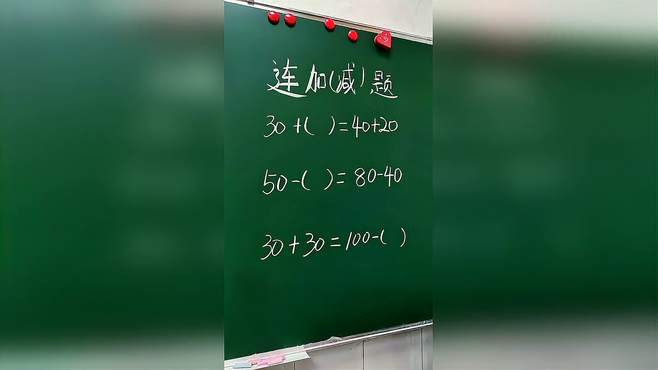 连加(减)题
30+( )=40+20
50-( )=80-40
30+30=100-( )